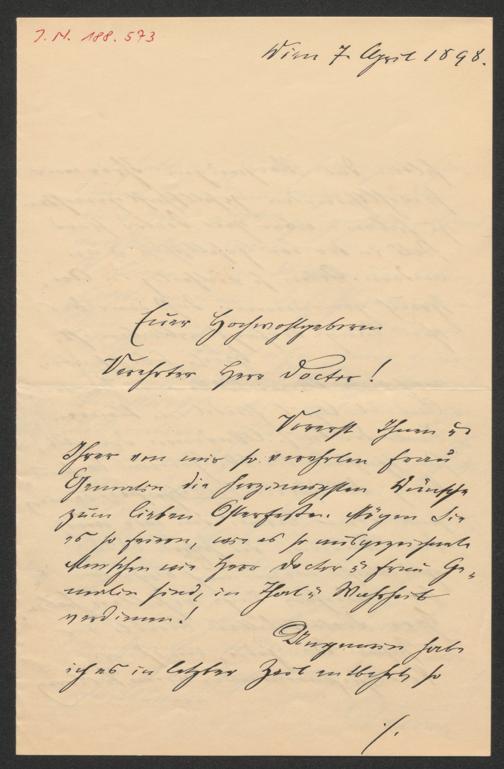 J.N. 188.573
Wien 7. April 1898.
Euer Hochwohlgeboren
Verehrter Herr Doctor!
Vorerst Ihnen u
Ihrer von mir so verehrten Frau
Gemalin die herzinnigsten Wünsche
zum lieben Osterfeste. Mögen Sie
es so feiern, wie es so ausgezeichnete
Menschen wie Herr Doctor u Frau Ge-
malin sind, in That u Wahrheit
verdienen!
Ungemein habe
ich es in letzter Zeit entbehrt, so
./.